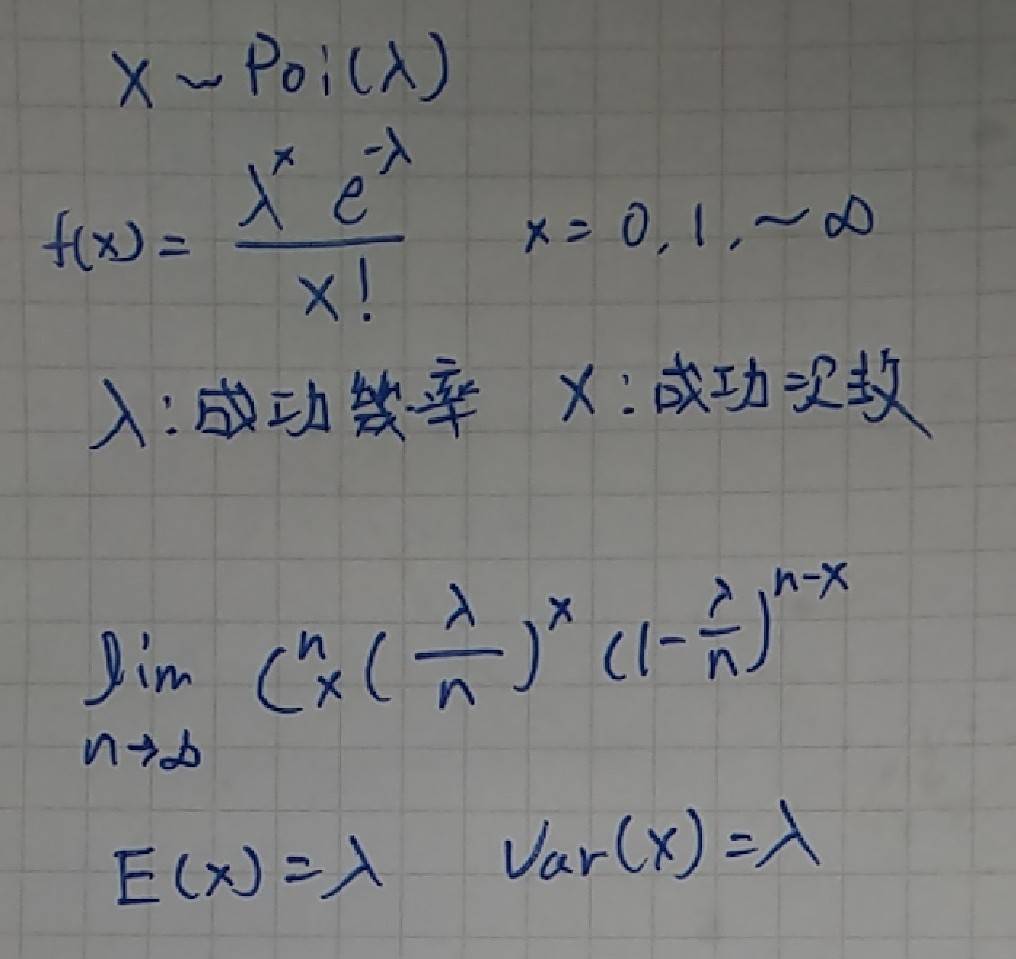 X ~ Poi(λ)
f(x) = \frac{λ^x e^{-λ}}{x!} x = 0, 1, ~ ∞
λ : 成功幾率 X : 成功次數
\lim_{n→∞} C^n_x (\frac{λ}{n})^x (1-\frac{λ}{n})^{n-x}
E(x) = λ Var(x) = λ